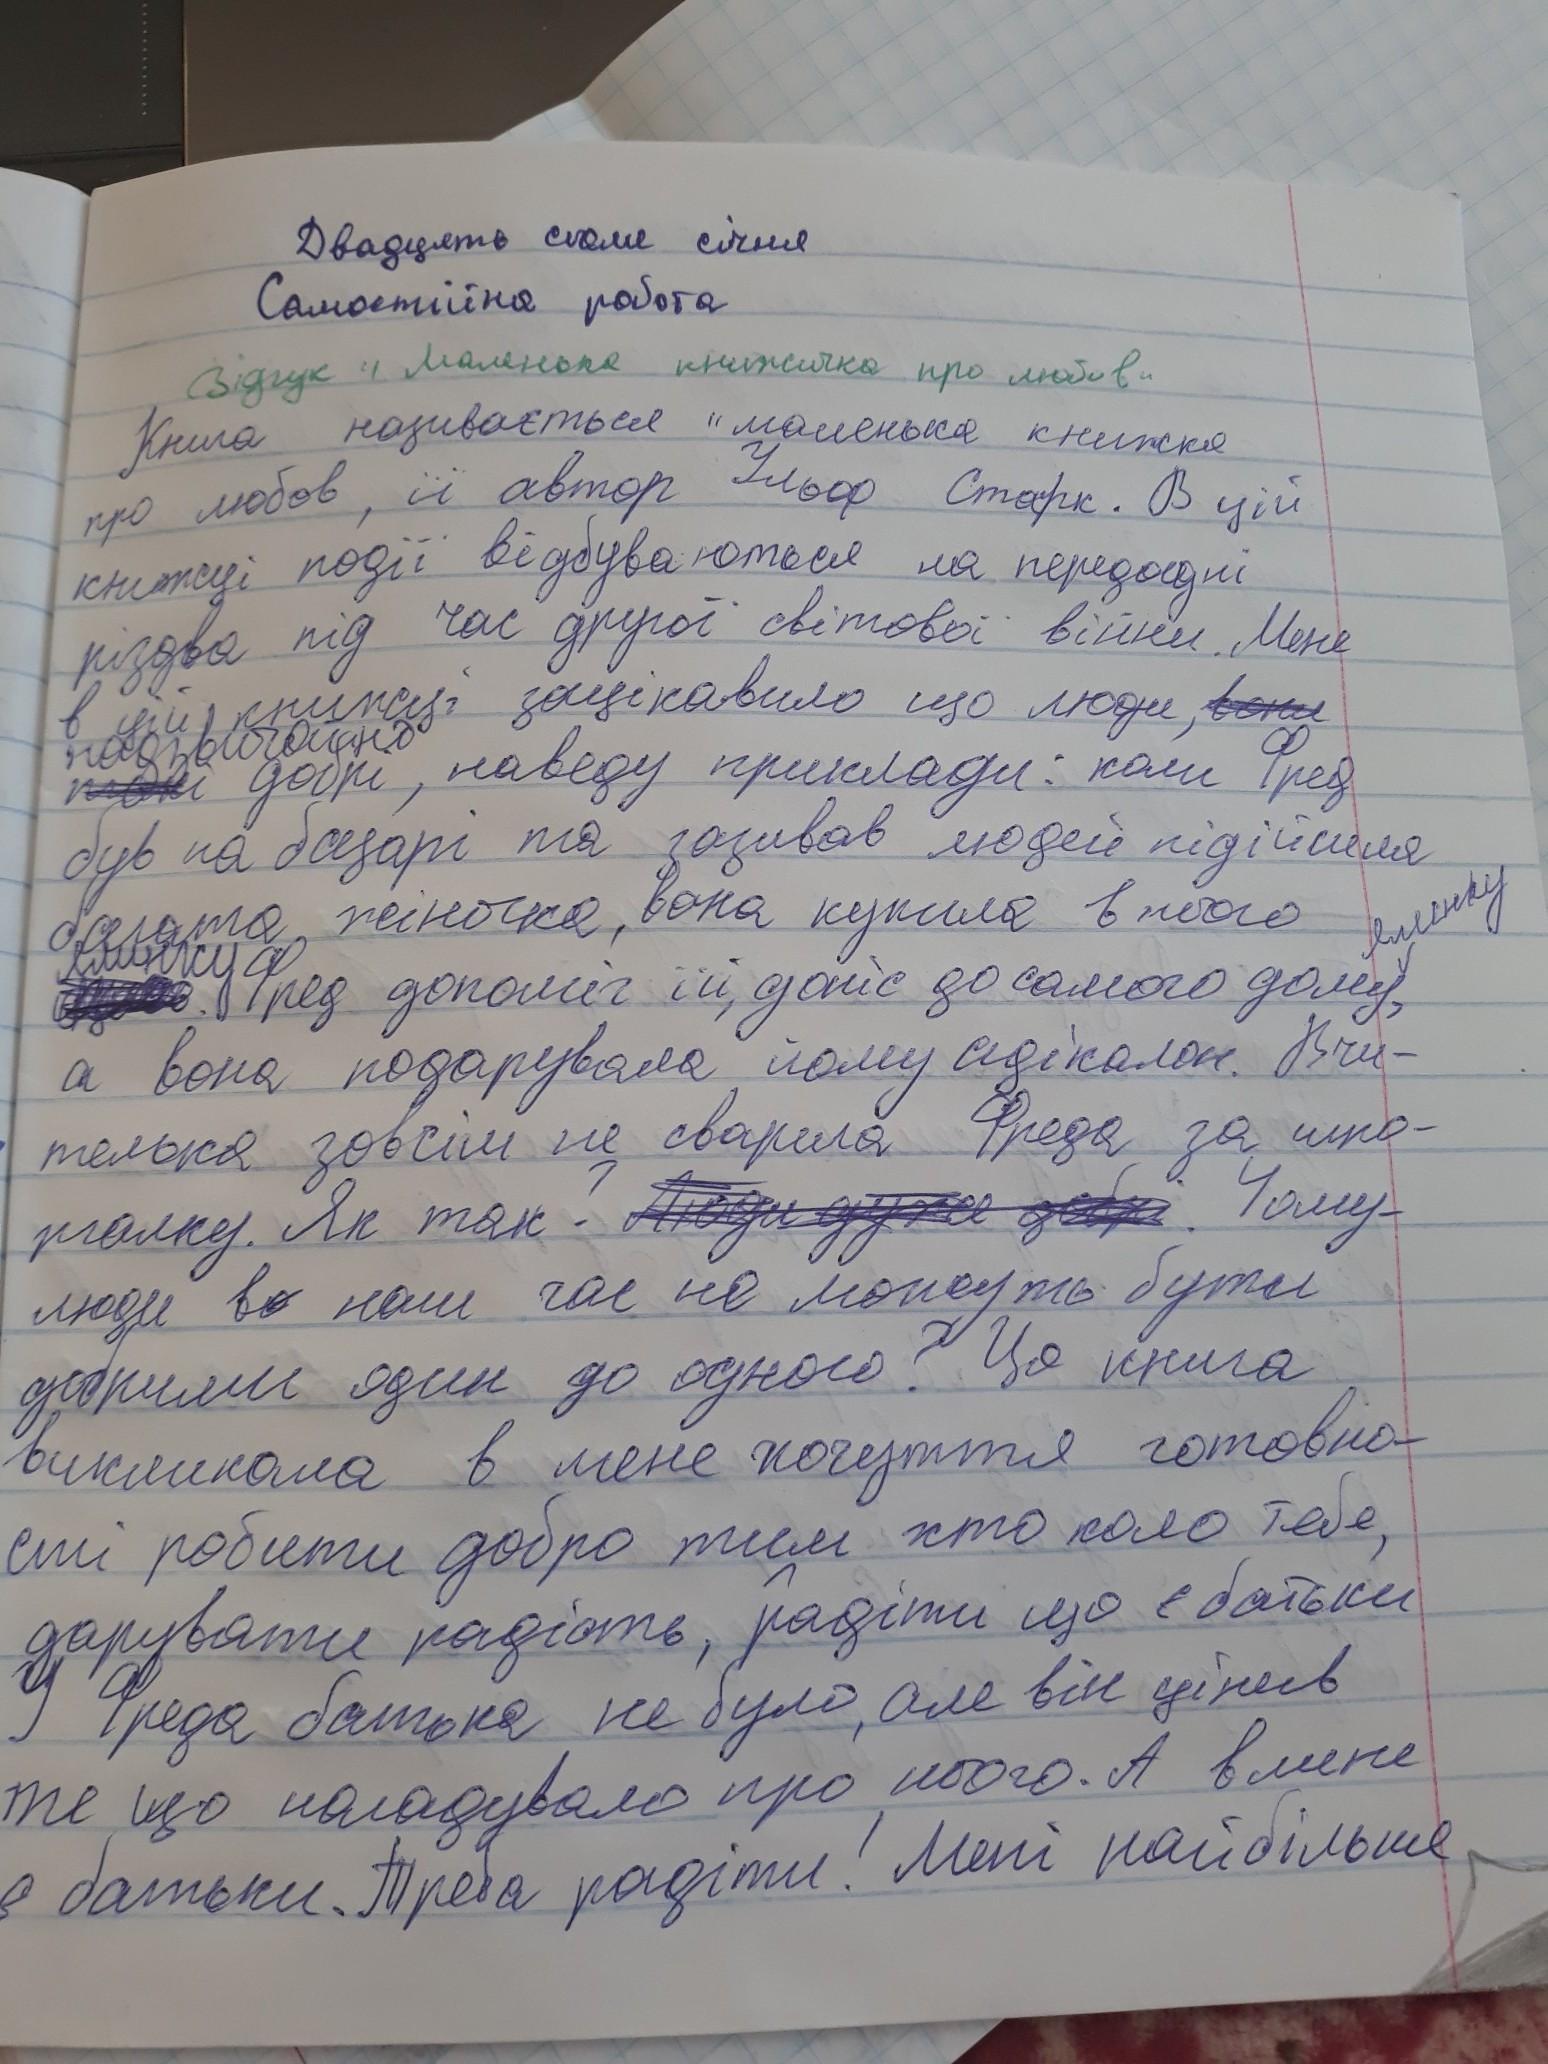 Двадцять сьоме січня
Самостійна робота
Відгук "Маленька книжечка про любов"
Книга називається "маленька книжка
про любов, її автор Ульф Старк. В цій
книжці події відбуваються на передодні
різдва під час другої світової війни. Мене
в цій книжці зацікавило що люди, вони
надзвичайно
такі добрі, наведу приклади: коли Фред
був на базарі та зазивав людей підійшла
багата жіночка, вона купила в нього
ялинку Фред допоміг їй, доніс до самого дому, ялинку
а вона подарувала йому одіколон. Вчи-
телька зовсім не сварила Фреда за шпа-
ргалку. Як так? Люди дуже добрі. Чому
люди в наш час не можуть бути
добрими один до одного? Ця книга
викликала в мене почуття готовно-
сті робити добро тим хто коло тебе,
дарувати радість, радіти що є батьки
У Фреда батька не було, але він цінив
те що нагадувало про нього. А в мене
є батьки. Треба радіти! Мені найбільше